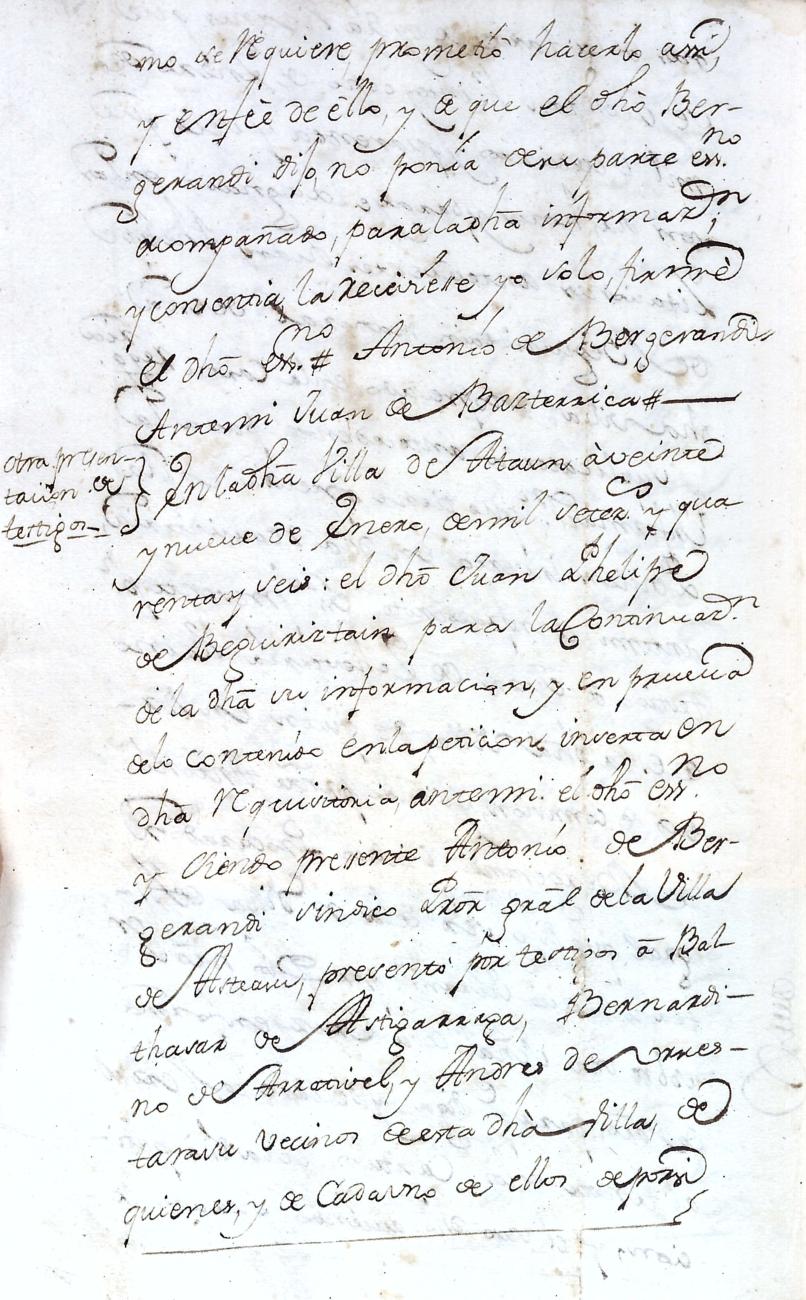 mo se requiere, prometió hacerlo assi,
y en feè de èllo, y de que el dhõ Ber-
gerandi dijo, no ponia de su parte ess.no
acompañado, para la dhã informaz.n,
y consentia, la reciviesse yo solo, firmè
el dhõ ess.no # Antonio de Bergerandi
Antemi Juan de Barterrica #
Otra presen-
tacion de
testigos
En la dhã Villa de Ataun à veinte
y nueve de Enero, de mil setez.s y qua-
renta y seis: el dhõ Juan Phelipe
de Beguiristain para la Continuaz.n
de la dhã su informacion, y en prueva
de lo contenido en la peticion inserta en
dhã requisitoria, antemi el dhõ ess.no
y siendo presente Antonio de Ber-
gerandi sindico Prõr grãl de la Villa
de Asteasu, presentò põr testigos â Bal-
thasar de Astigarraga, Bernardi-
no de Arrativel, y Andres de Urres-
tarasu vecinos de esta dhà Villa, de
quienes, y de Cada uno de ellos de por si